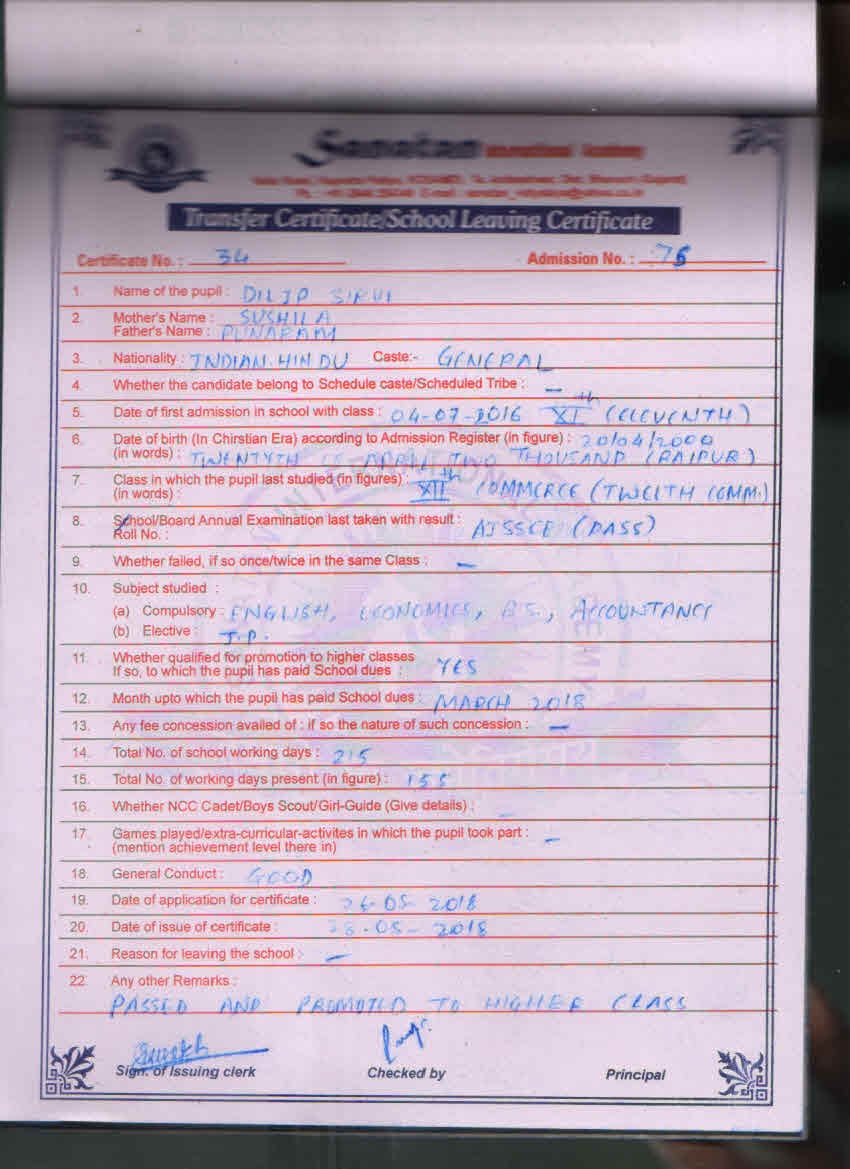 Sanatan
Transfer Certificate/School Leaving Certificate
Certificate No. : 34 Admission No. : 75
1. Name of the pupil : DILIP SIRVI
2. Mother's Name : SUSHILA
Father's Name : PUNARAM
3. Nationality : INDIAN. HINDU Caste:- GENERAL
4. Whether the candidate belong to Schedule caste/Scheduled Tribe : –
5. Date of first admission in school with class : 04-07-2016 XIth (ELEVENTH)
6. Date of birth (In Chirstian Era) according to Admission Register (in figure) : 20/04/2000
(in words) : TWENTYTH OF APRIL TWO THOUSAND (RAIPUR)
7. Class in which the pupil last studied (in figures) : XIIth COMMERCE (TWELTH COMM.)
(in words) :
8. School/Board Annual Examination last taken with result : AISSCE (PASS)
Roll No. :
9. Whether failed, if so once/twice in the same Class : –
10. Subject studied :
(a) Compulsory : ENGLISH, ECONOMICS, B.S., ACCOUNTANCY
(b) Elective : I.P.
11. Whether qualified for promotion to higher classes
If so, to which the pupil has paid School dues : YES
12. Month upto which the pupil has paid School dues : MARCH 2018
13. Any fee concession availed of : if so the nature of such concession : –
14. Total No. of school working days : 215
15. Total No. of working days present (in figure) : 155
16. Whether NCC Cadet/Boys Scout/Girl-Guide (Give details) : –
17. Games played/extra-curricular-activites in which the pupil took part : –
(mention achievement level there in)
18. General Conduct : GOOD
19. Date of application for certificate : 26-05-2018
20. Date of issue of certificate : 26-05-2018
21. Reason for leaving the school :- –
22. Any other Remarks :
PASSED AND PROMOTED TO HIGHER CLASS
Sign. of Issuing clerk Checked by Principal